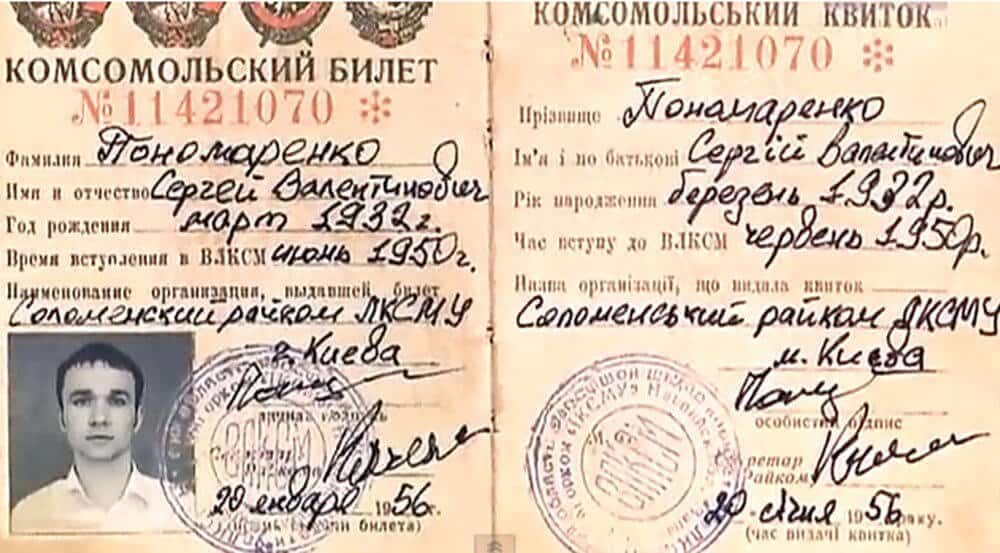 КОМСОМОЛЬСКИЙ БИЛЕТ
№11421070
Фамилия Пономаренко
Имя и отчество Сергей Валентинович
Год рождения март 1932г.
Время вступления в ВЛКСМ июнь 1950г.
Наименование организации, выдавшей билет
Соломенский райком ЛКСМУ
г. Киева
20 января 1956г.
билета)
КОМСОМОЛЬСЬКИЙ КВИТОК
№11421070
Прізвище Пономаренко
Ім'я і по батькові Сергій Валентинович
Рік народження березень 1932р.
Час вступу до ВЛКСМ червень 1950р.
Назва організації, що видала квиток
Соломенський райком ЛКСМУ
м. Києва
особистий підпис
20 січня 1956 року.
(час видачі квитка)